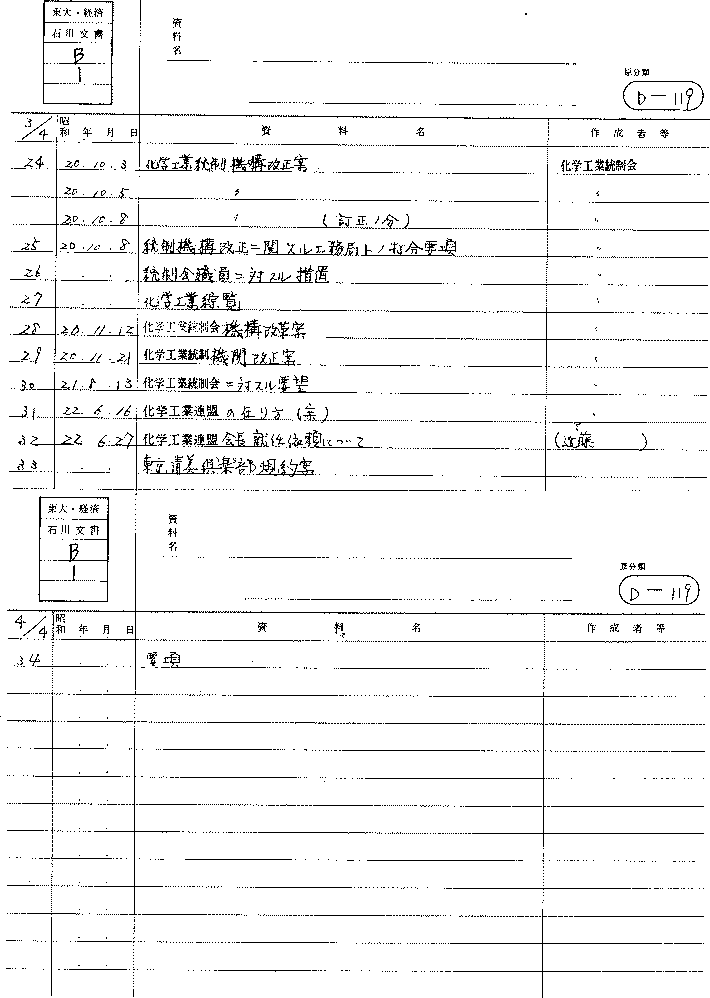 東大・経済
石川文書
B
1
資料名
原分類
D-119
3/4 昭和 年 月 日 資料名 作成者等
24 20.10.3 化学工業統制機構改正案 化学工業統制会
20.10.5 〃 〃
20.10.8 〃 (訂正ノ分) 〃
25 20.10.8 統制機構改正ニ関スル工務局トノ打合要項 〃
26 . . 統制会職員ニ対スル措置 〃
27 . . 化学工業綜覧 〃
28 20.11.12 化学工業統制会機構改革案 〃
29 20.11.21 化学工業統制機関改正案 〃
30 21.8.13 化学工業統制会ニ対スル要望
31 22.6.16 化学工業連盟の在り方(案) 〃
32 22.6.27 化学工業連盟会長就任依頼について (近藤 )
33 . . 東京清美倶楽部規約案
東大・経済
石川文書
B
1
資料名
原分類
D-119
4/4 昭和 年 月 日 資料名 作成者等
34 . . 要項